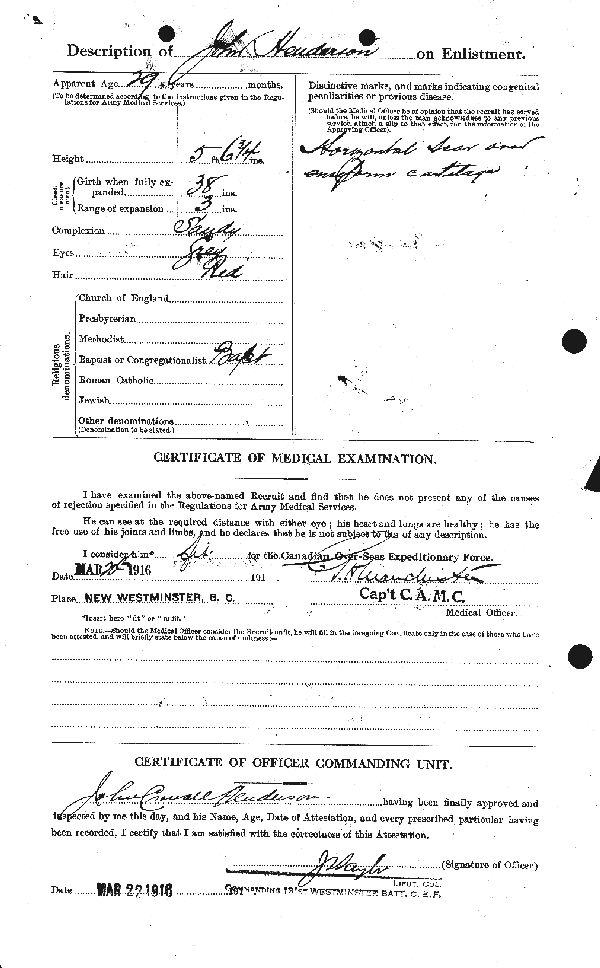 Description of John C Henderson on Enlistment.
Apparent Age 29 years months.
(To be determined according to the instructions given in the Regulations for Army Medical Services.)
Height 5 ft. 6 3/4 ins.
Chest measurement. Girth when fully expanded 38 ins.
Range of expansion 3 ins.
Complexion Sandy
Eyes Gray
Hair Red
Religious denominations.
Church of England
Presbyterian
Methodist
Baptist or Congregationalist Bapt
Roman Catholic
Jewish
Other denominations
(Denomination to be stated.)
Distinctive marks, and marks indicating congenital
peculiarities or previous disease.
(Should the Medical Officer be of opinion that the recruit has served
before, he will, unless the man acknowledges to any previous
service, attach a slip to that effect, for the information of the
Approving Officer).
Horizontal Scar over
ensiform cartilage
CERTIFICATE OF MEDICAL EXAMINATION.
I have examined the above-named Recruit and find that he does not present any of the causes
of rejection specified in the Regulations for Army Medical Services.
He can see at the required distance with either eye; his heart and lungs are healthy; he has the
free use of his joints and limbs, and he declares that he is not subject to fits of any description.
I consider him* fit for the Canadian Over-Seas Expeditionary Force.
Date MAR 1916 191
Place NEW WESTMINSTER, B. C. Cap't C.A.M.C.
Medical Officer.
*Insert here "fit" or "unfit."
NOTE.—Should the Medical Officer consider the Recruit unfit, he will fill in the foregoing Certificate only in the case of those who have
been attested, and will briefly state below the cause of unfitness:—
CERTIFICATE OF OFFICER COMMANDING UNIT.
John Henderson having been finally approved and
inspected by me this day, and his Name, Age, Date of Attestation, and every prescribed particular having
been recorded, I certify that I am satisfied with the correctness of this Attestation.
(Signature of Officer)
LIEUT. COL.
Date MAR 22 1916 COMMANDING 131ST WESTMINSTER BATT. C. E. F.